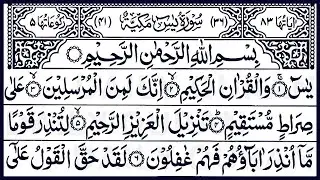 اٰیَاتُهَا ٨٣ (٣٦) سُوْرَةُ یٰسٓ مَكِّیَّةٌ (٤١) رُكُوْعَاتُهَا ٥
بِسْمِ اللهِ الرَّحْمٰنِ الرَّحِیْمِ
یٰسٓ ۝١ وَالْقُرْاٰنِ الْحَكِیْمِ ۝٢ اِنَّكَ لَمِنَ الْمُرْسَلِیْنَ ۝٣ عَلٰی
صِرَاطٍ مُّسْتَقِیْمٍ ۝٤ تَنْزِیْلَ الْعَزِیْزِ الرَّحِیْمِ ۝٥ لِتُنْذِرَ قَوْمًا
مَّاۤ اُنْذِرَ اٰبَآؤُهُمْ فَهُمْ غٰفِلُوْنَ ۝٦ لَقَدْ حَقَّ الْقَوْلُ عَلٰۤی